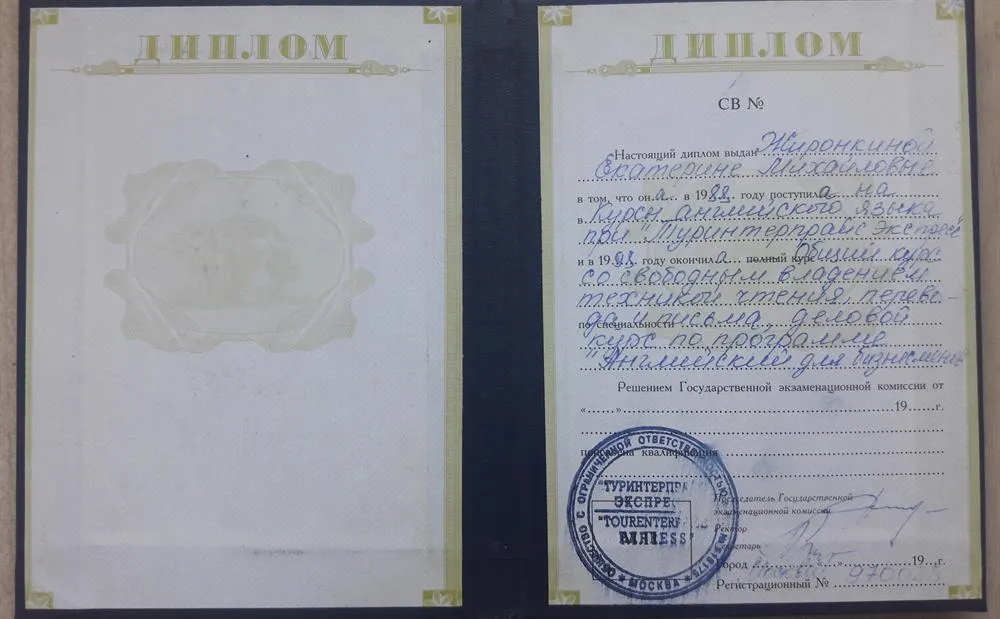 ДИПЛОМ
ДИПЛОМ
СВ №
Настоящий диплом выдан Жиронкиной
Екатерине Михайловне
в том, что он а в 1988 году поступил а на
в Курсы английского языка
при "Туринтерпрайс Экспресс"
и в 19 году окончил а полный курс Общий курс
со свободным владением
техникой чтения, перево-
по специальности да и письма, деловой
курс по программе
"Английский для бизнесменов"
Решением Государственной экзаменационной комиссии от
« » 19 г.
квалификация
Председатель Государственной
экзаменационной комиссии
Ректор
Секретарь
Город Москва 19 г.
Регистрационный № 970
ОБЩЕСТВО С ОГРАНИЧЕННОЙ ОТВЕТСТВЕННОСТЬЮ
"ТУРИНТЕРПР
ЭКСПРЕ
"TOURENTER
* МОСКВА *